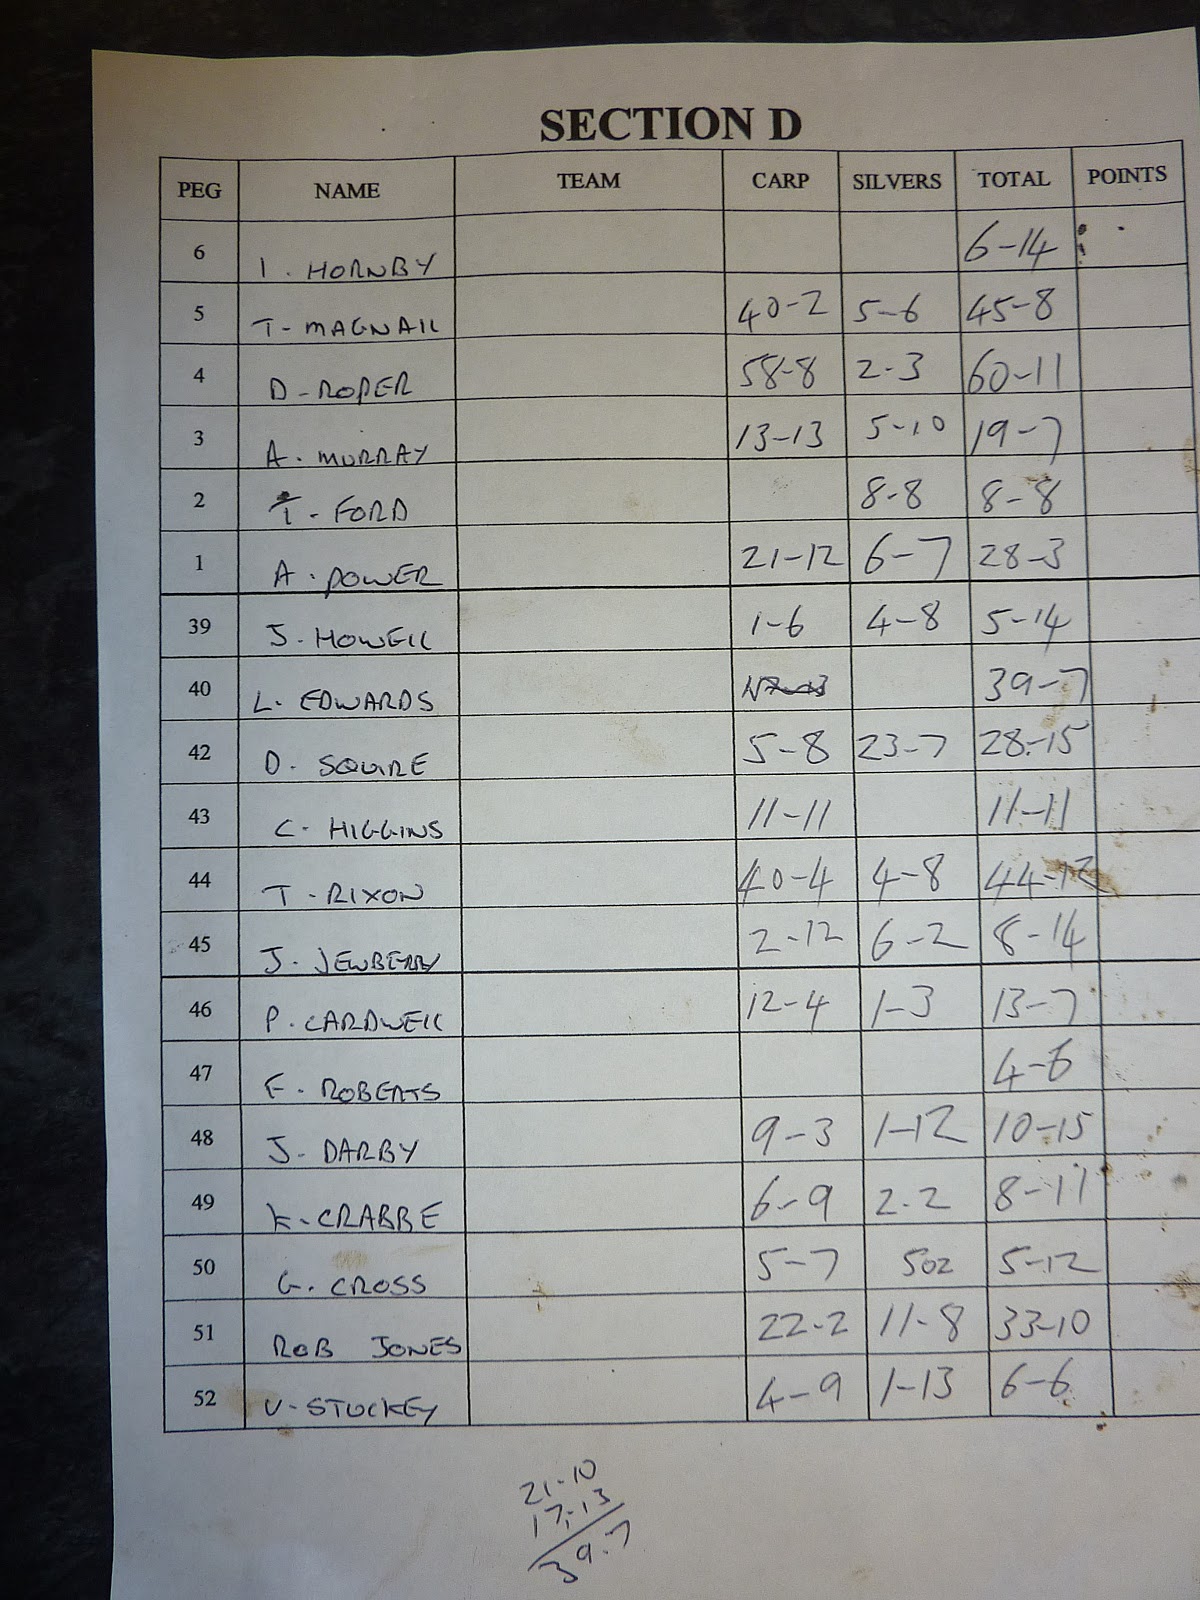 SECTION D
PEG NAME TEAM CARP SILVERS TOTAL POINTS
6 I. HORNBY 6-14
5 T- MAGNALL 40-2 5-6 45-8
4 D-ROPER 58-8 2-3 60-11
3 A. MURRAY 13-13 5-10 19-7
2 T- FORD 8-8 8-8
1 A. POWER 21-12 6-7 28-3
39 J. HOWELL 1-6 4-8 5-14
40 L. EDWARDS 39-7
42 D. SQUIRE 5-8 23-7 28-15
43 C- HIGGINS 11-11 11-11
44 T-RIXON 40-4 4-8 44-12
45 J- JEWBERRY 2-12 6-2 8-14
46 P. CARDWELL 12-4 1-3 13-7
47 F. ROBERTS 4-6
48 J- DARBY 9-3 1-12 10-15
49 K-CRABBE 6-9 2.2 8-11
50 G. CROSS 5-7 5oz 5-12
51 ROB JONES 22-2 11-8 33-10
52 V-STUCKEY 4-9 1-13 6-6
21-10
17-13
39-7